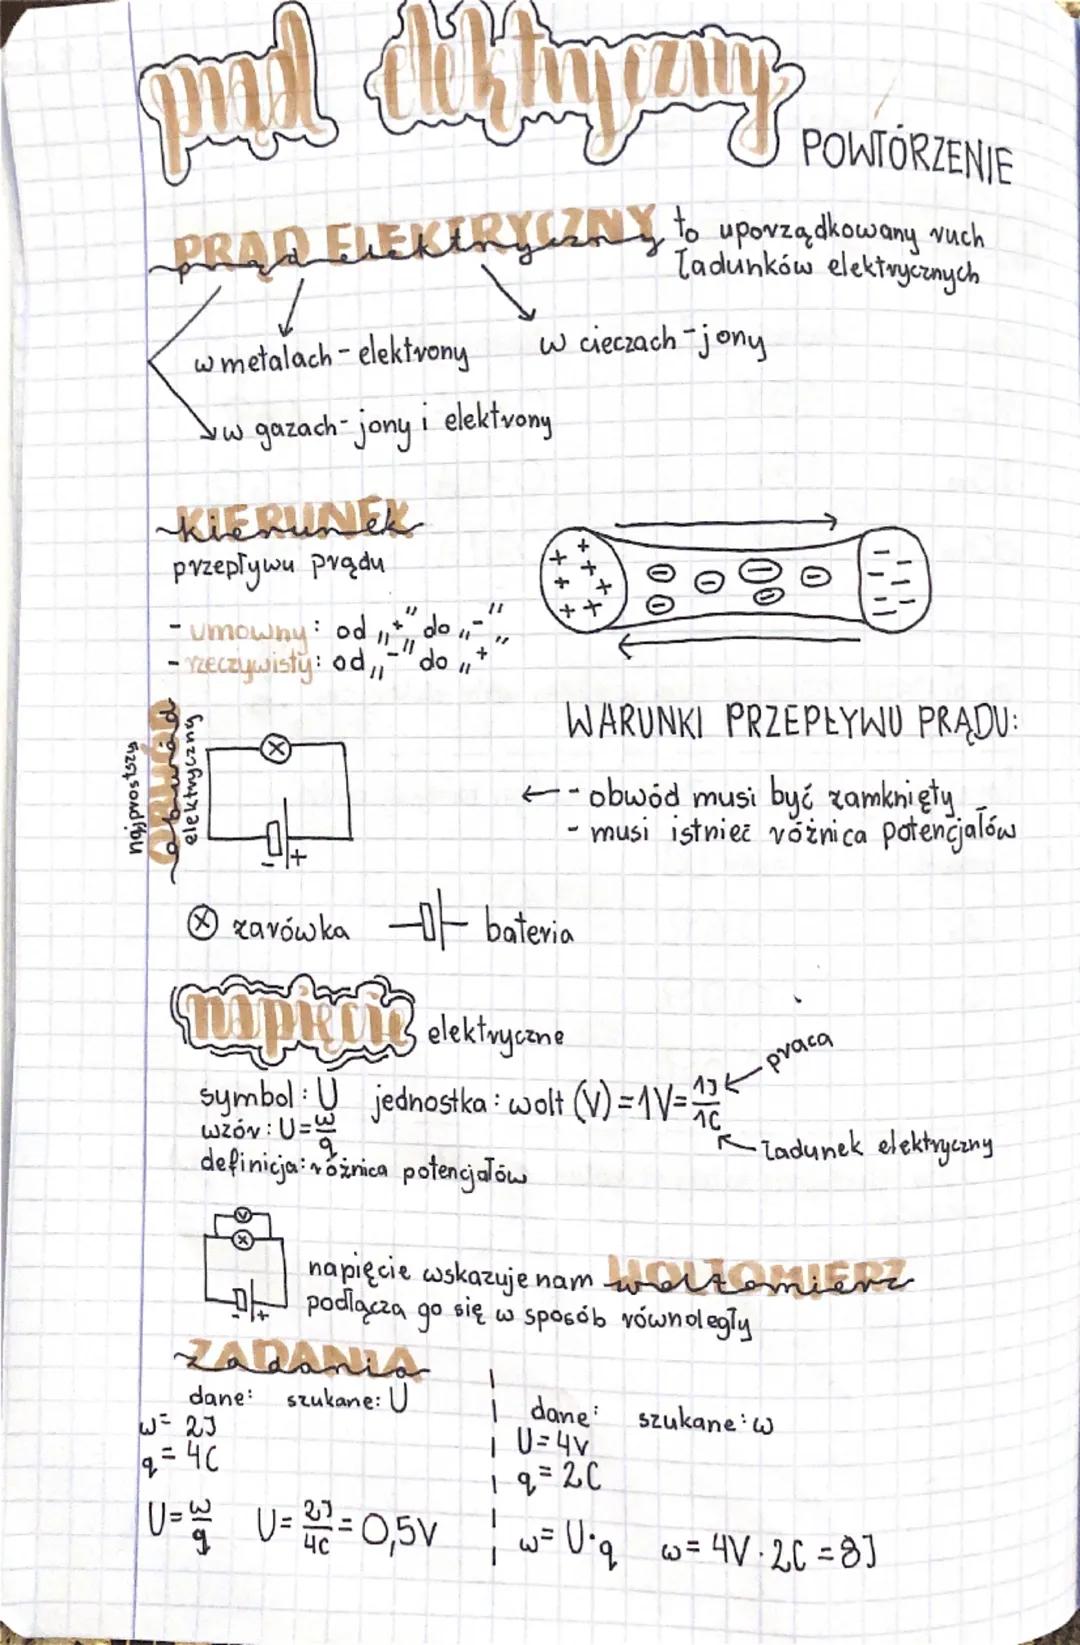 prąd elektryczny
POWTÓRZENIE
PRĄD ELEKTRYCZNY
prąd elektryczny
to uporządkowany ruch
ładunków elektrycznych
w metalach - elektrony
w cieczach - jony
w gazach - jony i elektrony
KIERUNEK
kierunek
przepływu prądu
- umowny: od „+” do „-”
- rzeczywisty: od „-” do „+”
+ + + + + + + +
- - - - - -
- - - - - - -
najprostszy
OBWÓD
obwód
elektryczny
X
- +
WARUNKI PRZEPŁYWU PRĄDU:
- obwód musi być zamknięty
- musi istnieć różnica potencjałów
X żarówka
bateria
napięcie elektryczne
symbol: U jednostka: wolt (V) = 1V = 1J/1C
praca
ładunek elektryczny
wzór: U = w/q
definicja: różnica potencjałów
V
X
- +
napięcie wskazuje nam WOLTOMIERZ
woltomierz
podłącza go się w sposób równoległy
ZADANIA
zadania
dane: szukane: U
w = 2J
q = 4C
U = w/q U = 2J/4C = 0,5V
dane: szukane: w
U = 4V
q = 2C
w = U·q w = 4V · 2C = 8J